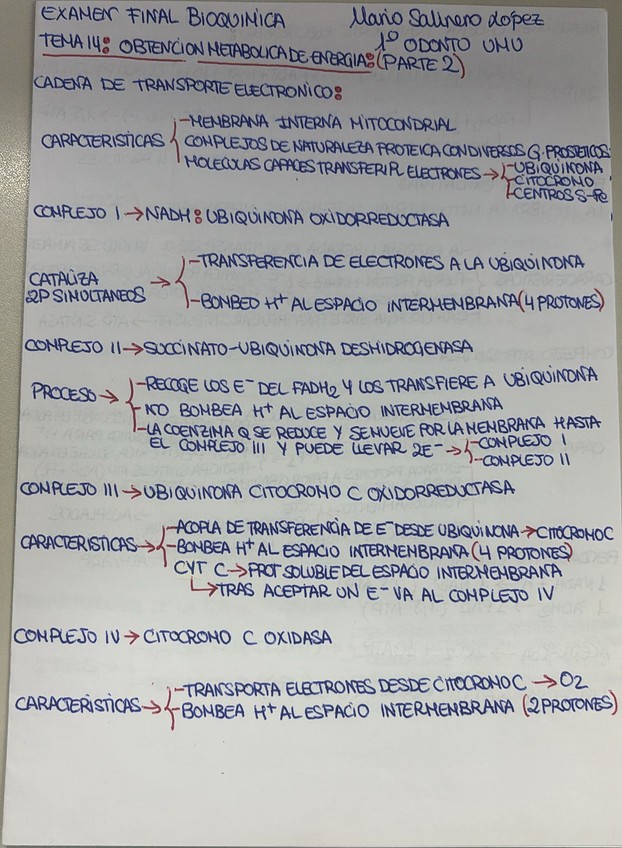 EXAMEN FINAL BIOQUIMICA Mario Salinero López
TEMA 14: OBTENCION METABOLICA DE ENERGIA: (PARTE 2) 1º ODONTO UMU
CADENA DE TRANSPORTE ELECTRONICO:
CARACTERISTICAS
-MEMBRANA INTERNA MITOCONDRIAL
COMPLEJOS DE NATURALEZA PROTEICA CON DIVERSOS G. PROSTETICOS
MOLECULAS CAPACES TRANSFERIR ELECTRONES →
-UBIQUINONA
-CITOCROMO
-CENTROS S-Fe
COMPLEJO I → NADH: UBIQUINONA OXIDORREDUCTASA
CATALIZA
2P SIMULTANEOS →
-TRANSFERENCIA DE ELECTRONES A LA UBIQUINONA
-BOMBEO H+ AL ESPACIO INTERMEMBRANA (4 PROTONES)
COMPLEJO II → SUCCINATO-UBIQUINONA DESHIDROGENASA
PROCESO →
-RECOGE LOS E- DEL FADH2 Y LOS TRANSFIERE A UBIQUINONA
-NO BOMBEA H+ AL ESPACIO INTERMEMBRANA
-LA COENZIMA Q SE REDUCE Y SE MUEVE POR LA MEMBRANA HASTA
EL COMPLEJO III Y PUEDE LLEVAR 2E- →
-COMPLEJO I
-COMPLEJO II
COMPLEJO III → UBIQUINONA CITOCROMO C OXIDORREDUCTASA
CARACTERISTICAS →
-ACOPLA DE TRANSFERENCIA DE E- DESDE UBIQUINONA → CITOCROMO C
-BOMBEA H+ AL ESPACIO INTERMEMBRANA (4 PROTONES)
CYT C → PROT SOLUBLE DEL ESPACIO INTERMEMBRANA
↳ TRAS ACEPTAR UN E- VA AL COMPLEJO IV
COMPLEJO IV → CITOCROMO C OXIDASA
CARACTERISTICAS →
-TRANSPORTA ELECTRONES DESDE CITOCROMO C → O2
-BOMBEA H+ AL ESPACIO INTERMEMBRANA (2 PROTONES)